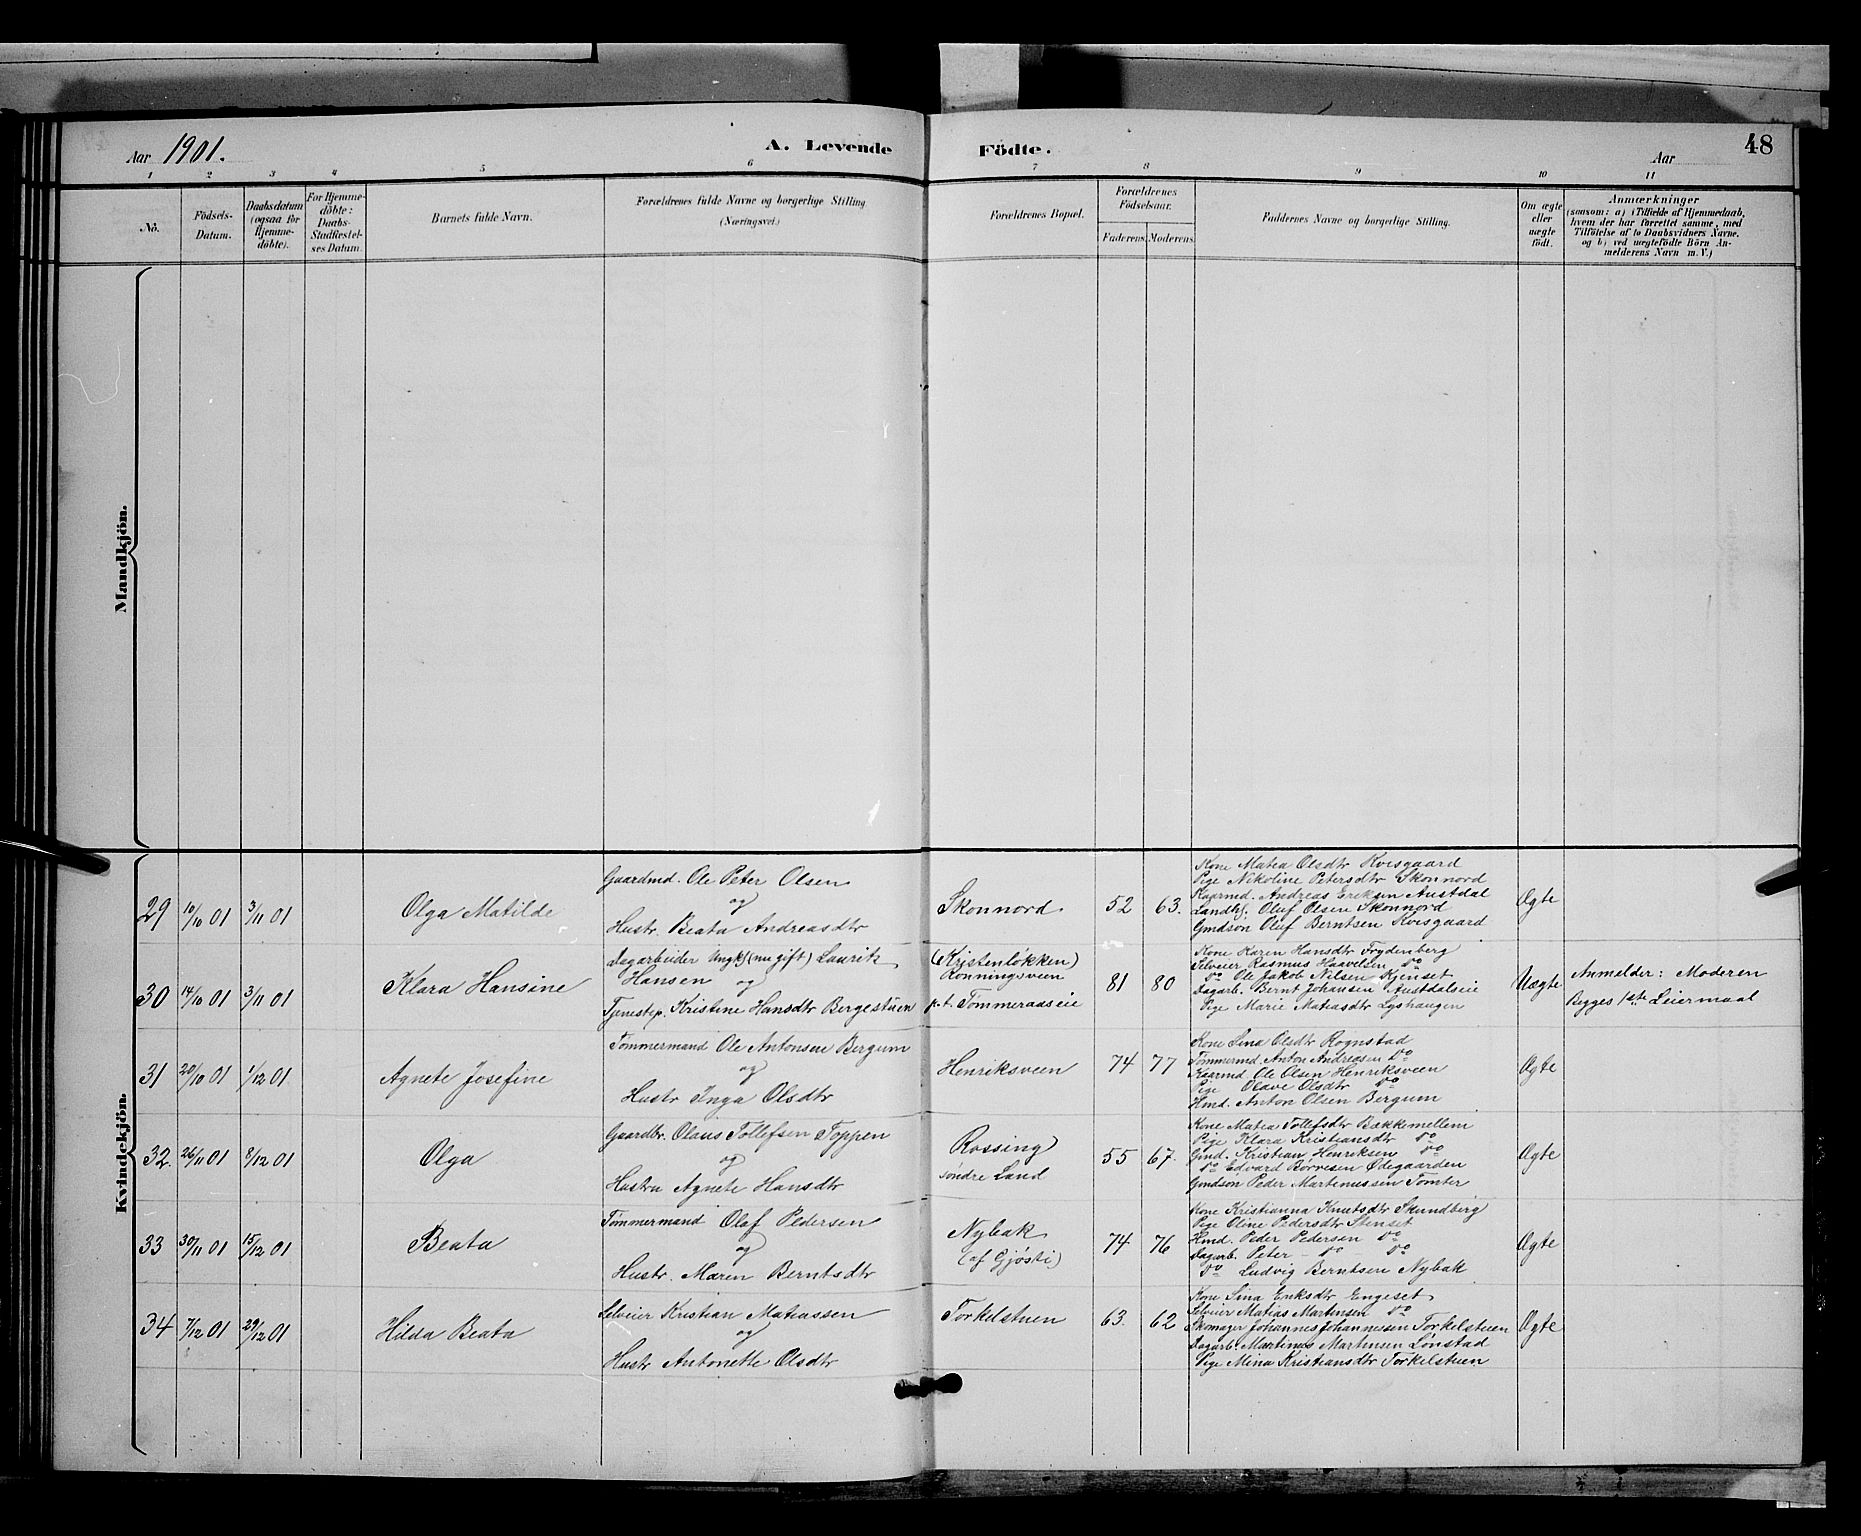 Aar 1901.
A. Levende Födte.
Aar
48
1 2 3 4 5 6 7 8 9 10 11
No.
Födsels-
Datum.
Daabsdatum
(ogsaa for
Hjemme-
döbte).
For Hjemme-
döbte:
Daabs-
Stadfestel-
ses Datum.
Barnets fulde Navn.
Forældrenes fulde Navne og borgerlige Stilling
(Næringsvei.)
Forældrenes Bopæl.
Forældrenes
Födselsaar.
Faderens. Moderens.
Faddernes Navne og borgerlige Stilling.
Om ægte
eller
uægte
födt.
Anmærkninger
(saasom: a) i Tilfælde af Hjemmedaab,
hvem der har forrettet samme, med
Tilföielse af to Daabsvidners Navne,
og b) ved uægtefödte Börn An-
melderens Navn m. V.)
Mandkjön.
Kvindekjön.
29 10/10 01 3/11 01
Olga Matilde
Gaardmd. Ole Peter Olsen
og
Hustr. Beata Andreasdtr
Skonnord
52 63.
Kone Matea Olsdtr Kvisgaard
Pige Nikoline Petersdtr Skonnord
Kaarmd. Andreas Eriksen Austdal
Landh. Oluf Olsen Skonnord
Gmdsön Oluf Berntsen Kvisgaard
Ægte
30 14/10 01 3/11 01
Klara Hansine
Dagarbeider Ungk. (nu gift) Lauritz
Hansen og
Tjenestep. Kristine Hansdtr Bergestuen
(Kristenløkken)
Rønningsveen
p.t. Tømmeraaseie
81 80
Kone Karen Hansdtr Frydenberg
Selveier Rasmus Haavelsen do
do Ole Jakob Nilsen Kjenset
Dagarb. Bernt Johansen Austdaleie
Pige Marie Matiasdtr Lyshaugen
Uægte
Anmelder: Moderen
Begges 1ste Leiermaal
31 20/10 01 1/12 01
Agnete Josefine
Tømmermand Ole Antonsen Bergum
og
Hustr Inga Olsdtr
Henriksveen
74 77
Kone Lina Olsdtr Rognstad
Tømmermd. Anton Andreasen do
Kaarmd. Ole Olsen Henriksveen
Pige Olave Olsdtr do
Hmd. Anton Olsen Bergum
Ægte
32. 26/11 01 8/12 01
Olga
Gaardbr. Olaus Tollefsen Toppen
og
Hustru Agnete Hansdtr
Rossing
søndre Land
55 67.
Kone Matea Tollefsdtr Bækkemellem
Pige Klara Kristiansdtr do
Gmd. Kristian Henriksen do
do Edvard Børresen Ødegaarden
Gmdsön Peder Martinussen Tomter
Ægte
33 30/11 01 15/12 01
Beata
Tømmermand Olaf Pedersen
og
Hustr. Maren Berntsdtr
Nybak
(af Gjøsti)
74 76
Kone Kristianna Knutsdtr Skundberg
Pige Oline Pedersdtr Stenset
Hmd. Peder Pedersen do
Dagarb. Peter - do - do
do Ludvig Berntsen Nybak
Ægte
34 7/12 01 29/12 01
Hilda Beata
Selveier Kristian Matiassen
og
Hustr Antonette Olsdtr
Torkelstuen
63. 62
Kone Lina Eriksdtr Engeset
Selveier Matias Martinsen do
Skomager Johannes Johannessen Torkelstuen
Dagarb. Martinus Martinsen Lønstad
Pige Mina Kristiansdtr Torkelstuen
Ægte